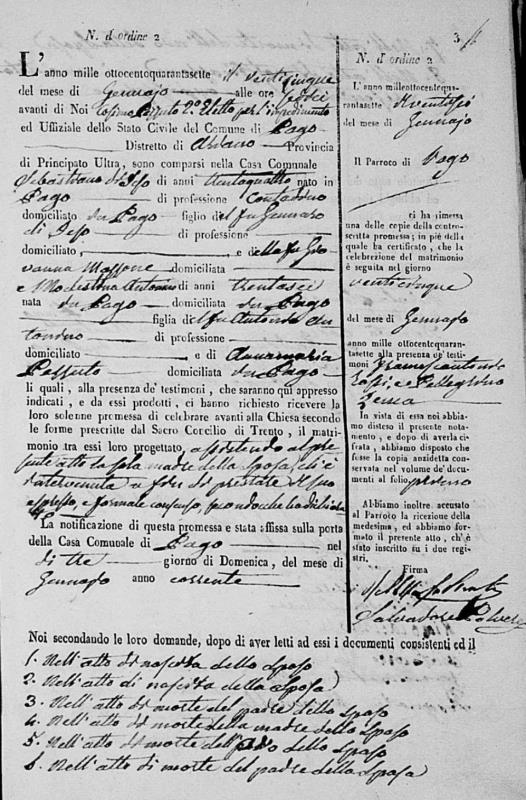 N. d'ordine 2
L'anno mille ottocentoquarantasette il venticinque
del mese di Gennajo alle ore sedici
avanti di Noi Cosimo Polluto 2° Eletto per l'impedimento
ed Uffiziale dello Stato Civile del Comune di Pago
Distretto di Ariano Provincia
di Principato Ultra, sono comparsi nella Casa Comunale
Sebastiano di Jeso di anni trentaquattro nato in
Pago di professione Contadino
domiciliato in Pago figlio del fu Gennaro
di Jeso di professione
domiciliato, e della fu Gio
vanna domiciliata
e Modestina di anni trentasei
nata in Pago domiciliata in Pago
figlia del fu Antonio
di professione
domiciliato e di Annamaria
Polluto domiciliata in Pago
li quali, alla presenza de' testimoni, che saranno qui appresso
indicati, e da essi prodotti, ci hanno richiesto ricevere la
loro solenne promessa di celebrare avanti alla Chiesa secondo
le forme prescritte dal Sacro Concilio di Trento, il matri-
monio tra essi loro progettato, assistendo al pre
sente atto la sola madre della sposa, che è
intervenuta a fin di prestare il suo
espresso, e formale consenso, secondo che ha dichiarato
La notificazione di questa promessa è stata affissa sulla porta
della Casa Comunale di Pago nel
di tre giorno di Domenica, del mese di
Gennajo anno corrente
Noi secondando le loro domande, dopo di aver letti ad essi i documenti consistenti ed il
1. Nell'atto di nascita dello sposo
2. Nell'atto di nascita della sposa
3. Nell'atto di morte del padre dello sposo
4. Nell'atto di morte della madre dello sposo
5. Nell'atto di morte dell'avo dello sposo
6. Nell'atto di morte del padre della sposa
3
N. d'ordine 2
L'anno milleottocentoquar-
antasette il ventisei
del mese di Gennajo
Il Parroco di Pago
ci ha rimessa
una delle copie della contro-
scritta promessa; in piè della
quale ha certificato, che la
celebrazione del matrimonio
è seguita nel giorno
venticinque
del mese di Gennajo
anno mille ottocentoquaran-
tasette alla presenza de' testi-
moni Francescantonio
e Pellegrino
In vista di essa noi abbia-
mo disteso il presente nota-
mento, e dopo di averla ci-
frata, abbiamo disposto che
fosse la copia anzidetta con-
servata nel volume de' docu-
menti al foglio
Abbiamo inoltre accusato
al Parroco la ricezione della
medesima, ed abbiamo for-
mato il presente atto, ch'è
stato inscritto su i due regi-
stri.
Firma
Salvadore